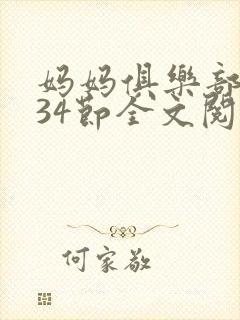 妈妈俱樂部
34節全文閱
何家敬